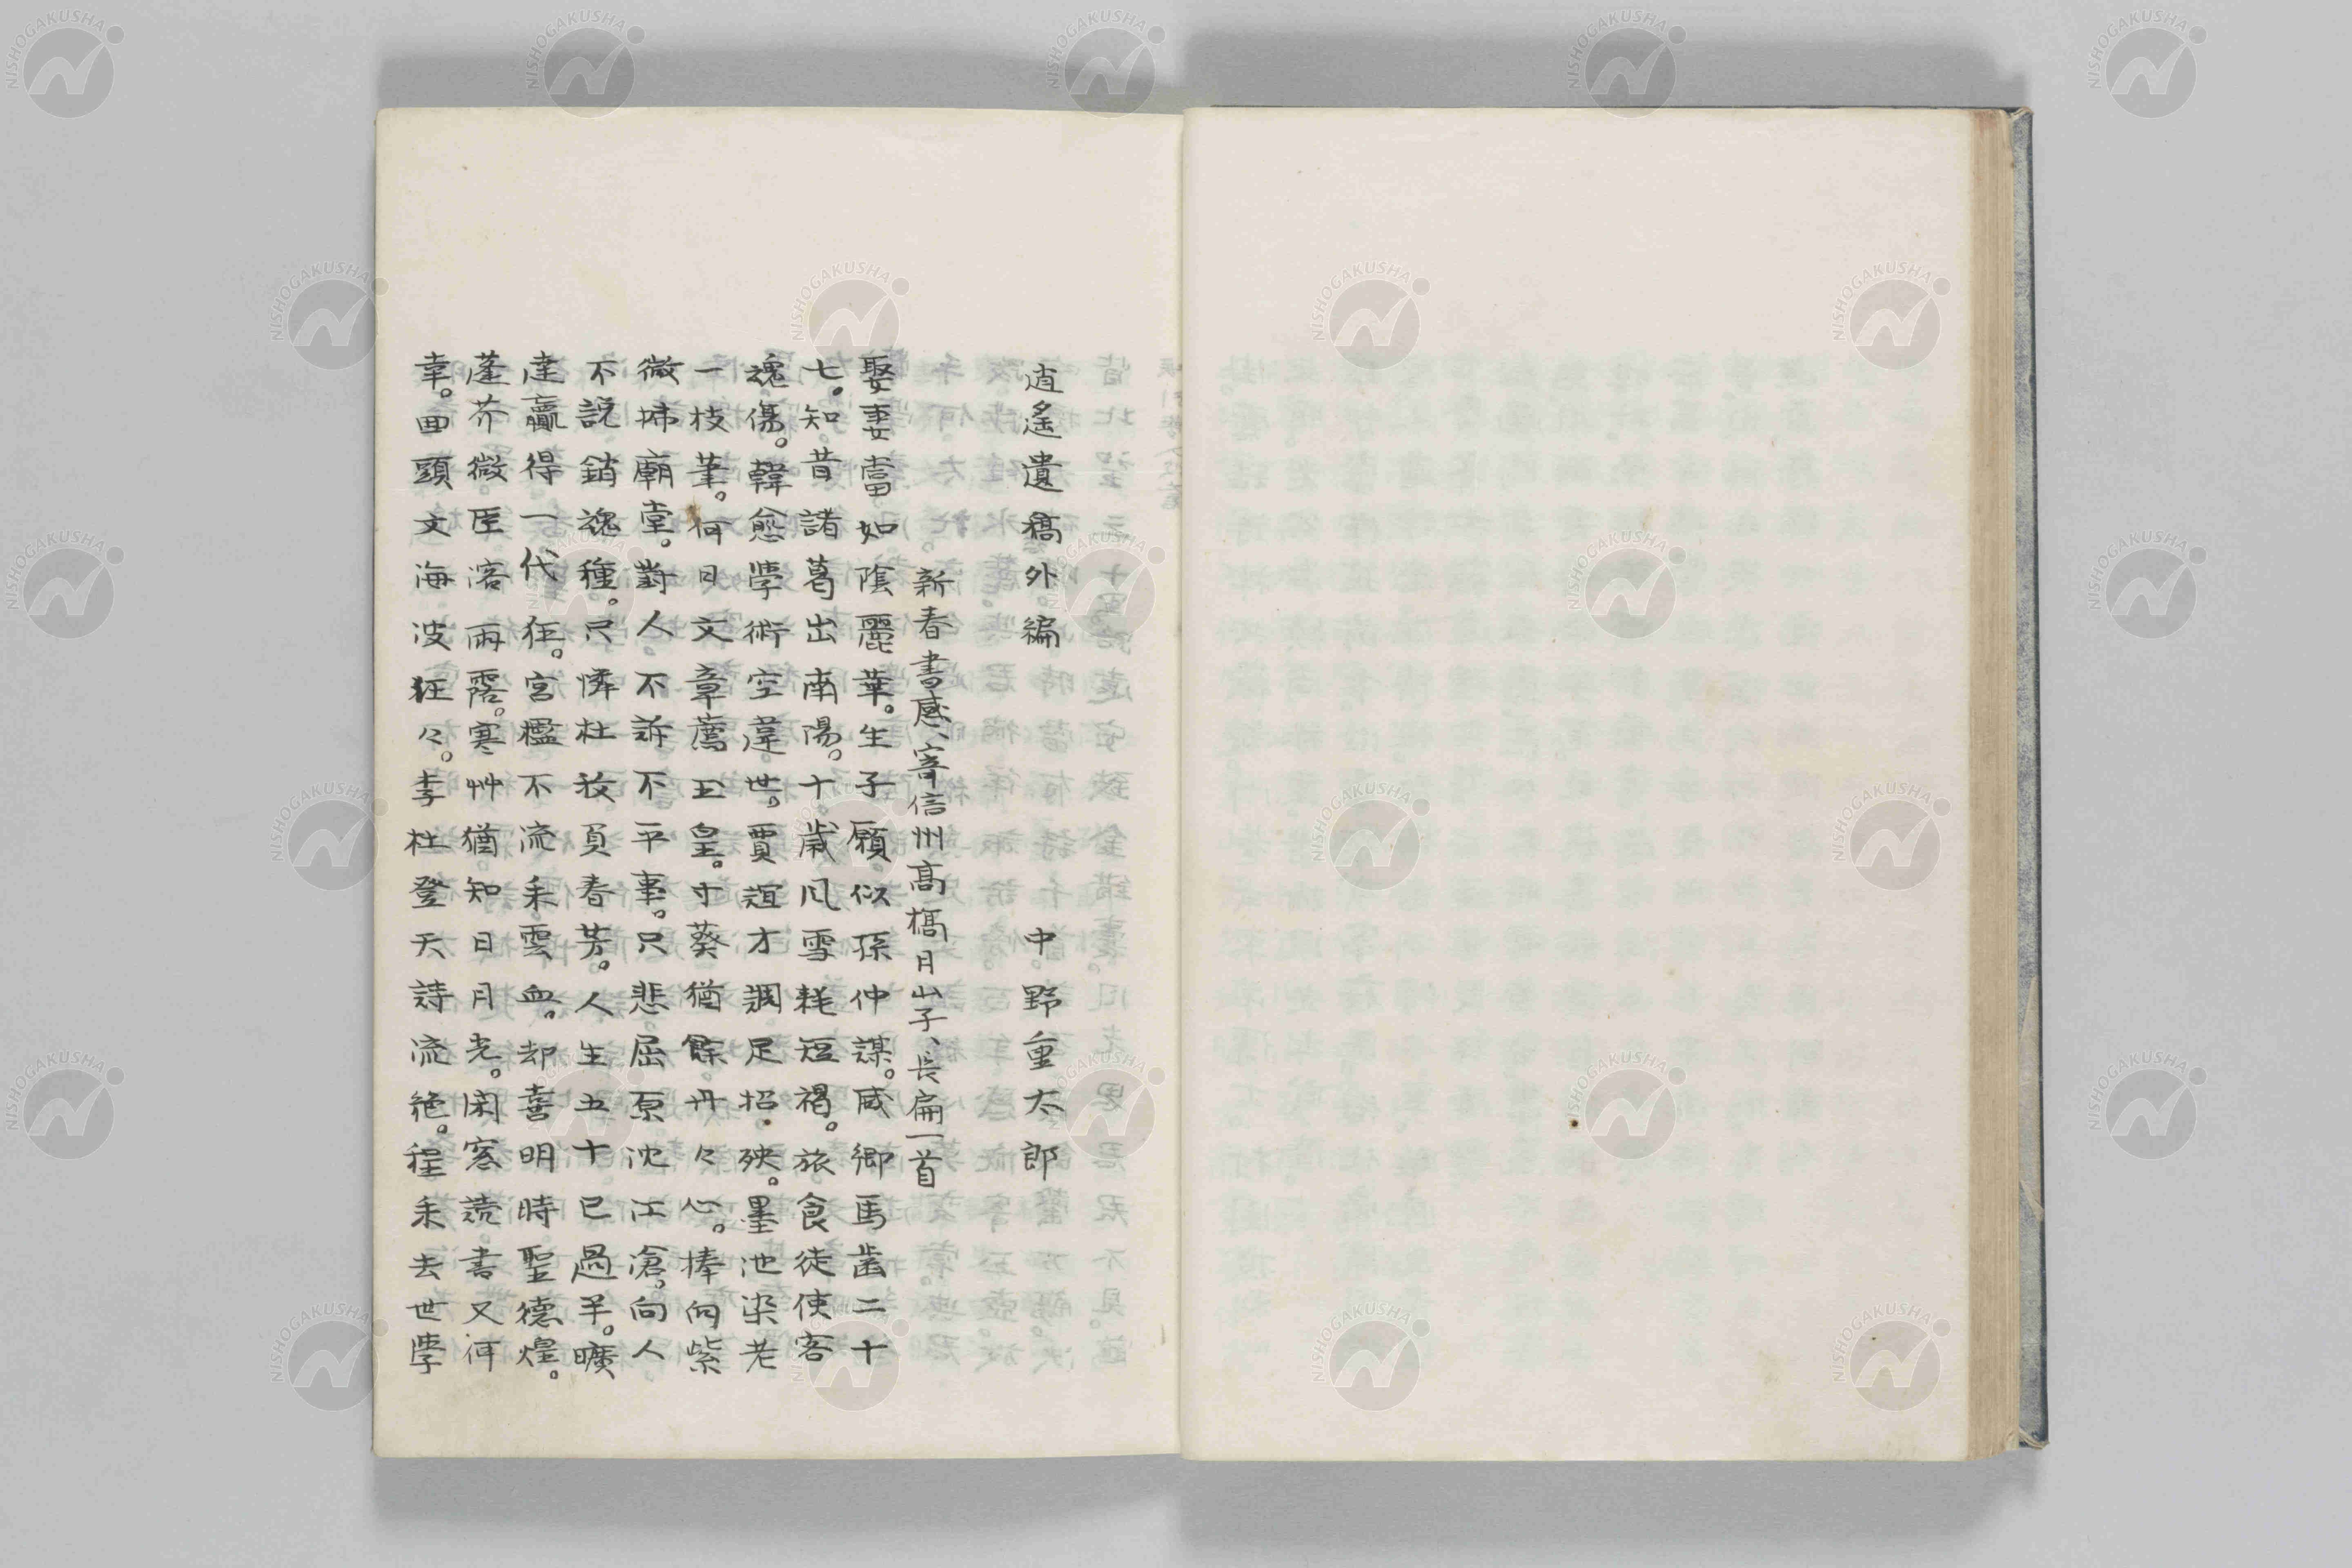 逍遙遺稿外編　中野重太郎
新春書感、寄信州高橋月山子、長扁一首
娶妻當如陰麗華。生子願似孫仲謀。咸卿馬齒二十
七。知昔諸葛出南陽。十歲風雪耗短褐。旅食徒使客
魂傷。韓愈學術空違世。賈誼才調足招殃。墨池染老
一枝筆。何日文章薦玉皇。寸葵猶餘丹々心。捧向紫
微掃廟堂。對人不訴不平事。只悲屈原沈江滄。向人
不說銷魂種。只憐杜牧負春芳。人生五十已過半。曠
達贏得一代狂。宮檻不流朱雲血。却喜明時聖德煌。
蓬芥微臣濡雨露。寒艸猶知日月光。閑窓読書又何
幸。回頭文海波狂々。李杜登天詩流絶。程朱去世學